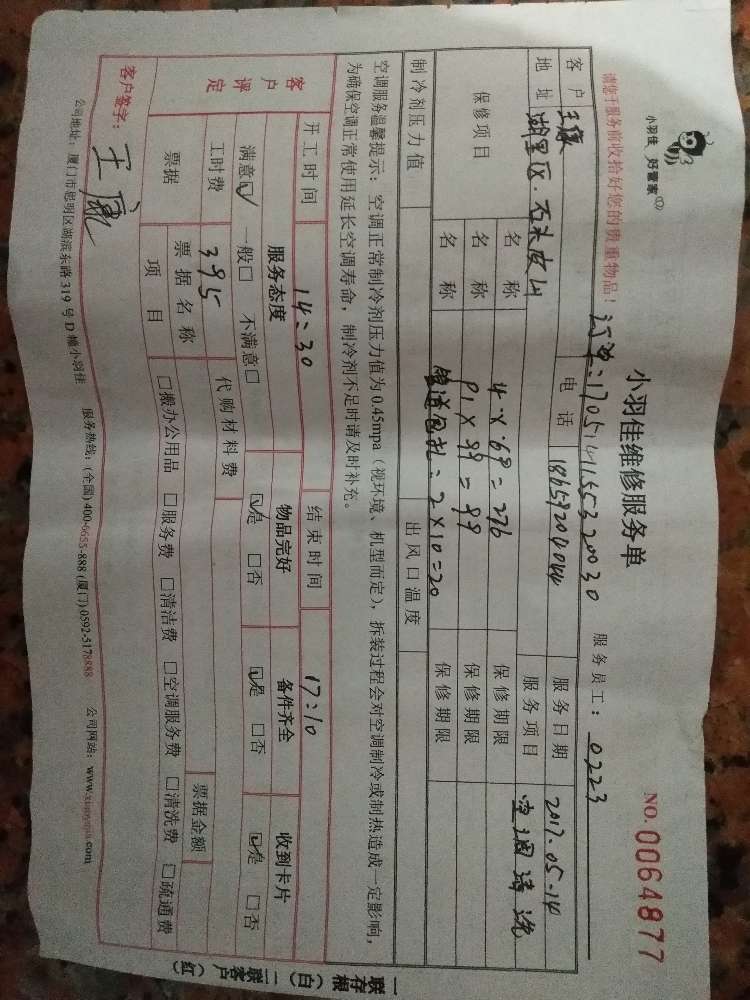 小羽佳 好管家
小羽佳维修服务单
NO. 0064877
请您于服务前收拾好您的贵重物品!
订单:1705141553320030
服务员工: 0223
客户 王康 电话 18659204044 服务日期 2017.05-14
地址 湖里区·石头皮山 服务项目 空调清洗
保修项目
名称 4×69=276 保修期限
名称 P1×99=99 保修期限
名称 管道包扎:2×10=20 保修期限
制冷剂压力值 出风口温度
空调服务温馨提示:空调正常制冷剂压力值为0.45mpa(视环境、机型而定),拆装过程会对空调制冷或制热造成一定影响,
为确保空调正常使用延长空调寿命,制冷剂不足时请及时补充。
开工时间 14:30 结束时间 17:10
客户评定 服务态度 物品完好 备件齐全 收到卡片
满意☑ 一般□ 不满意□ ☑是 □否 ☑是 □否 ☑是 □否
工时费 395 代购材料费
票据 票据名称 票据金额
项目 □搬办公用品 □服务费 □清洁费 □空调服务费 □清洗费 □疏通费
客户签字: 王康
公司地址:厦门市思明区湖滨东路319号D幢小羽佳 服务热线:(全国)400-6655-888 (厦门)0592-5178888 公司网站:www.xiaoyujia.com
一联存根(白)二联客户(红)